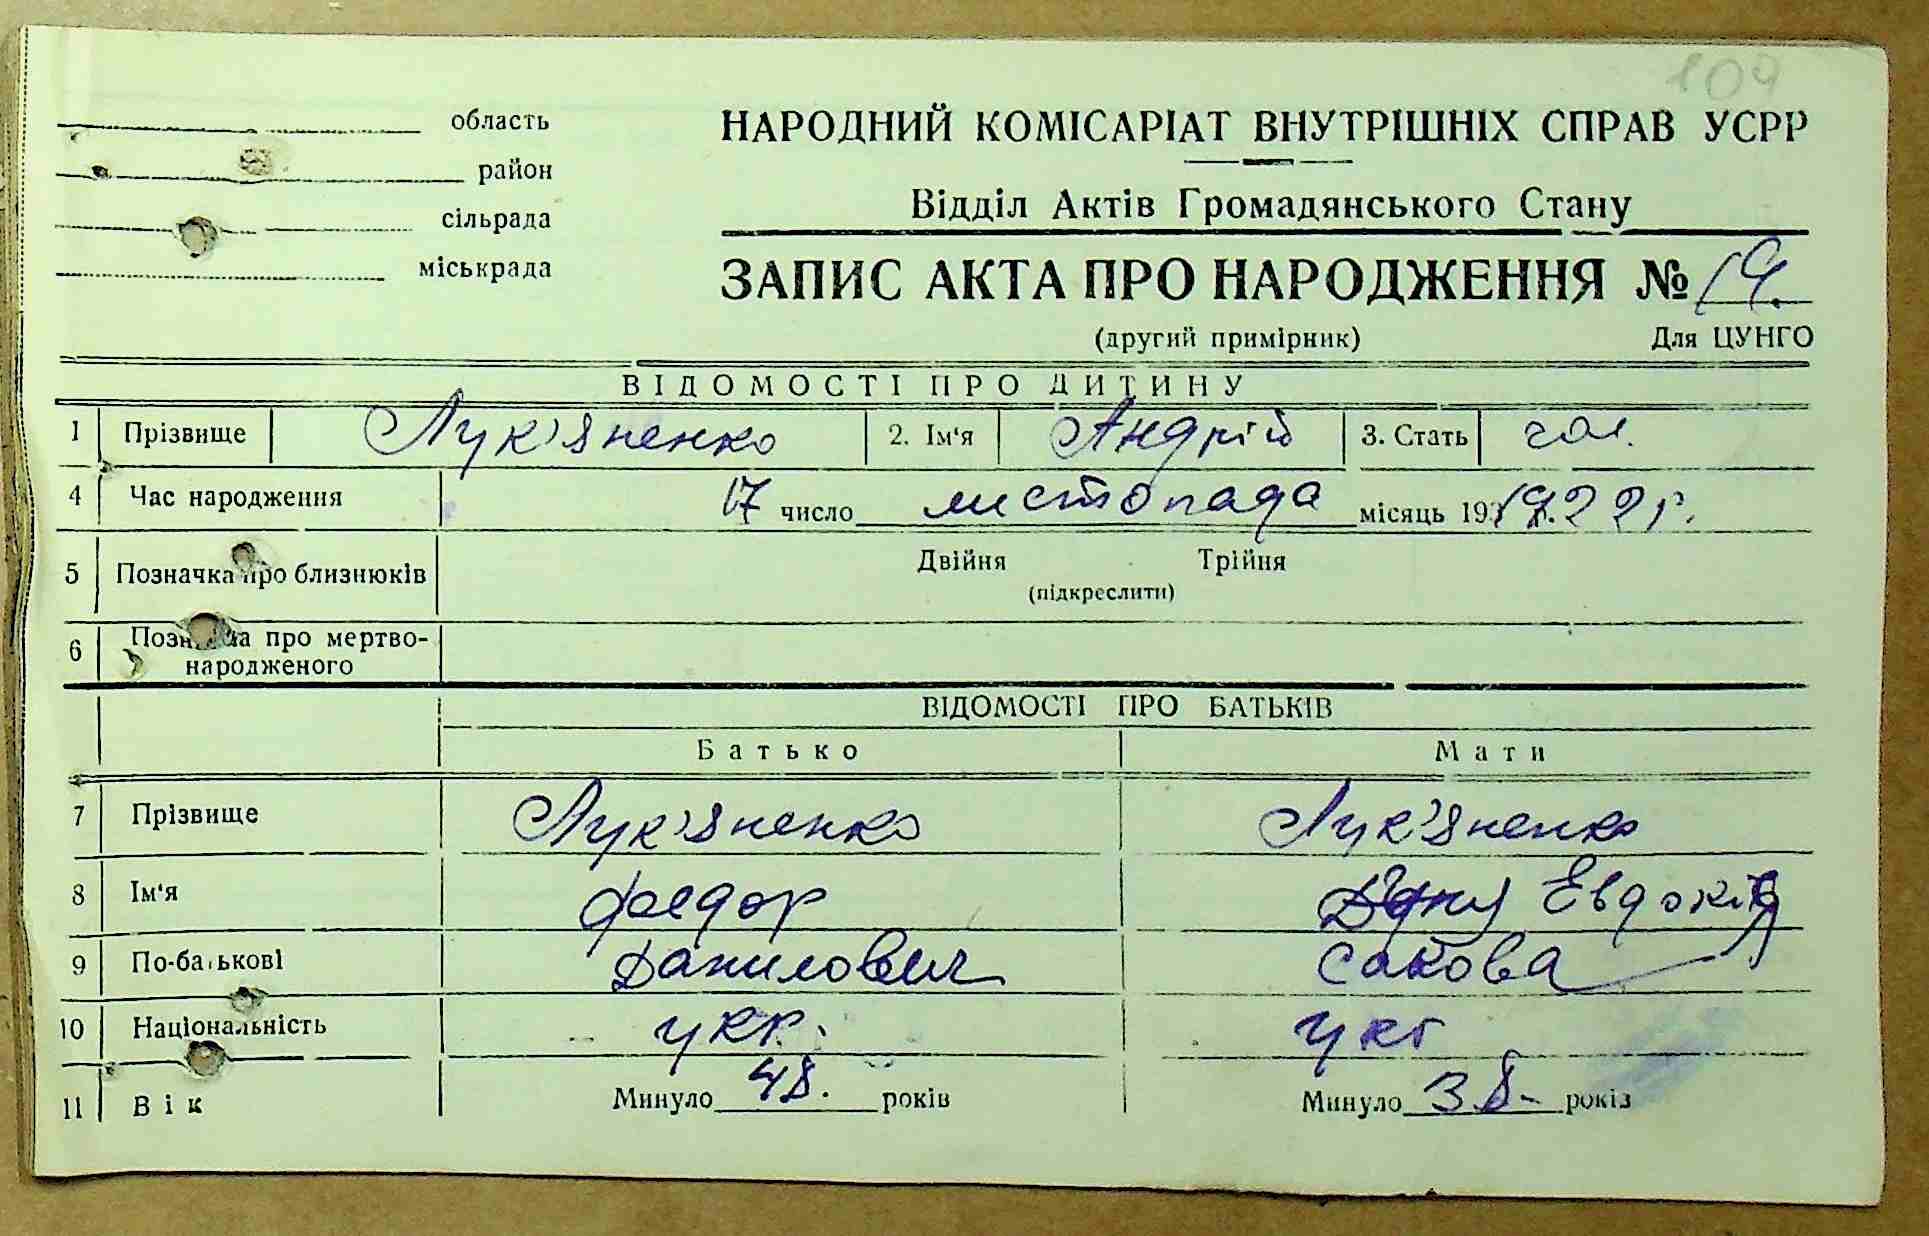 109
область
район
сільрада
міськрада
НАРОДНИЙ КОМІСАРІАТ ВНУТРІШНІХ СПРАВ УСРР
Відділ Актів Громадянського Стану
ЗАПИС АКТА ПРО НАРОДЖЕННЯ № 19.
(другий примірник) Для ЦУНГО
ВІДОМОСТІ ПРО ДИТИНУ
1 Прізвище Лук'яненко 2. Ім'я Андрій 3. Стать чол.
4 Час народження 17 число листопада місяць 193 1922 р.
5 Позначка про близнюків Двійня Трійня
(підкреслити)
6 Позначка про мертво-
народженого
ВІДОМОСТІ ПРО БАТЬКІВ
Батько Мати
7 Прізвище Лук'яненко Лук'яненко
8 Ім'я Федор Евдокія
9 По-батькові Данилович Сакова
10 Національність укр. укр
11 Вік Минуло 48. років Минуло 38- років